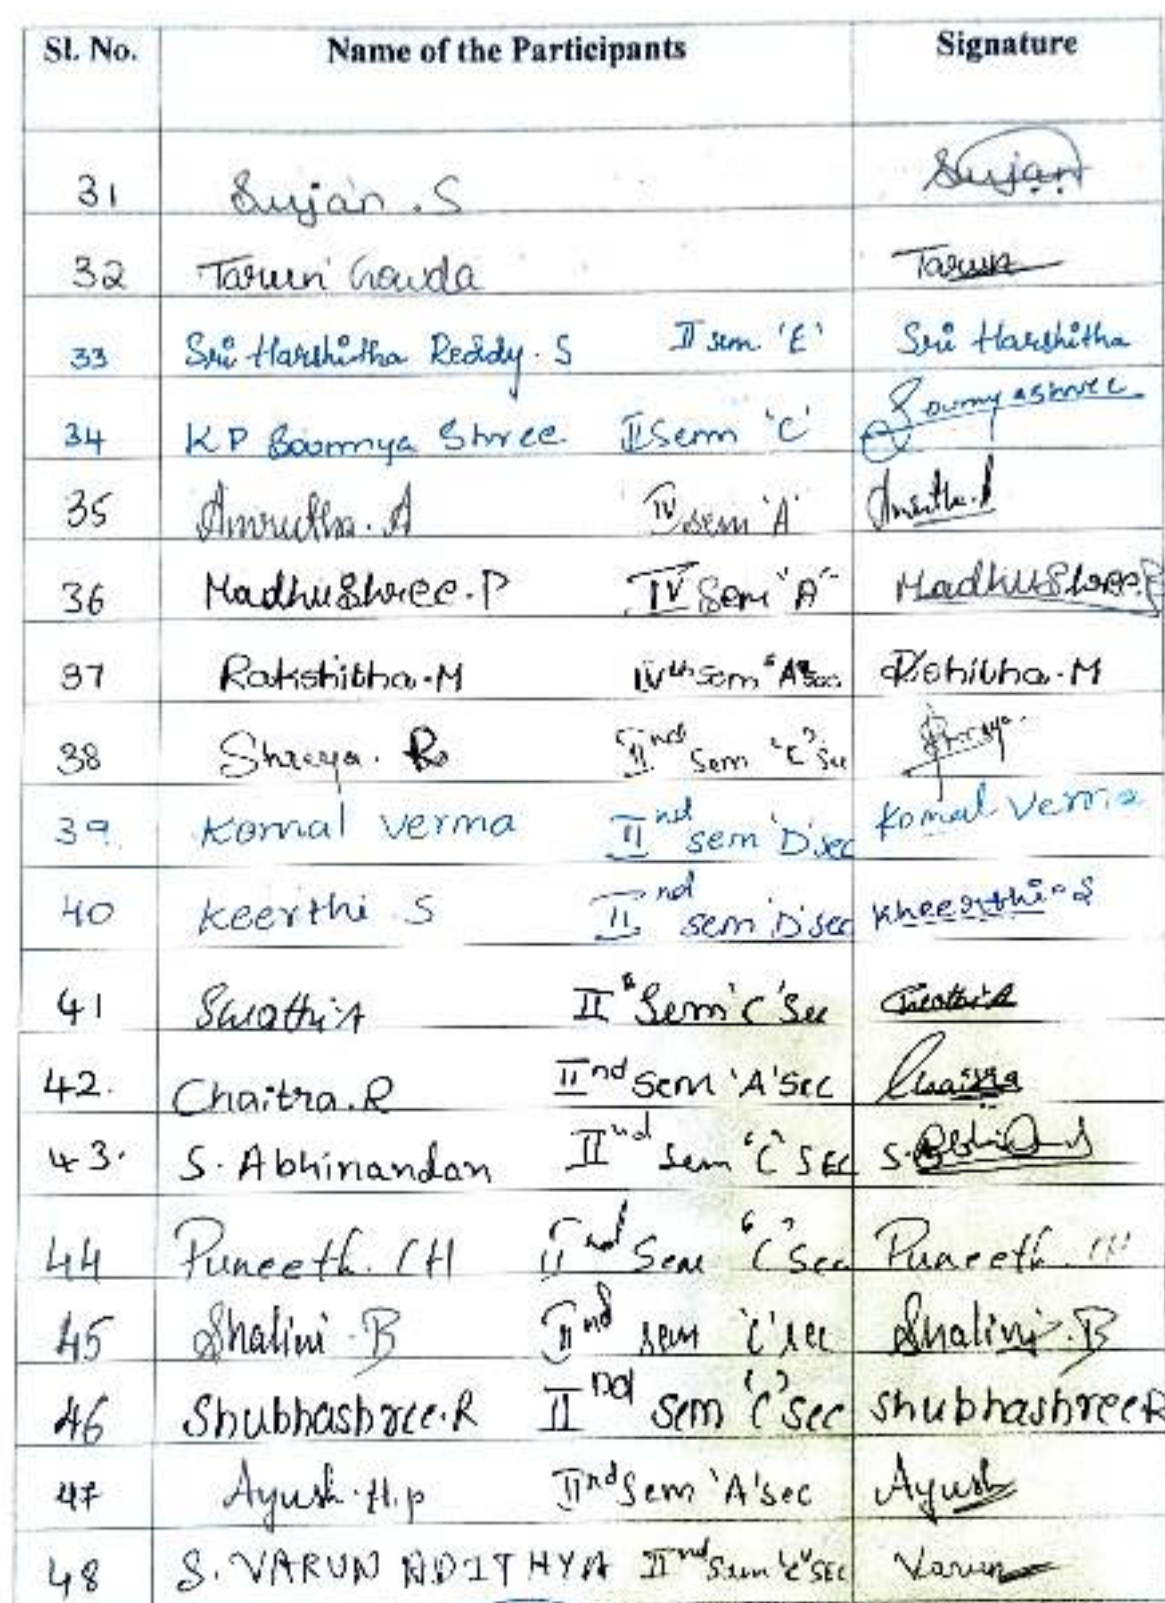 Sl. No. Name of the Participants Signature
31 Sujan .S Sujan
32 Tarun Gowda Tarun
33 Sri Harshitha Reddy. S II sem 'E' Sri Harshitha
34 K P Soumya Shree II sem 'C' Soumyashree
35 Amrutha. A IV sem 'A' Amrutha.A
36 MadhuShree.P IV Sem "A" MadhuShree.P
37 Rakshitha.M IVth sem "A" sec
38 Shreya. R IInd Sem "C" Sec Shreya.
39. Komal Verma IInd sem 'D' sec Komal Verma
40 Keerthi S IInd sem 'D' sec Kheerthi.S
41 Swathi A II Sem 'C' Sec
42. Chaitra.R IInd sem 'A' Sec Chaitra
43. S. Abhinandan IInd Sem "C" SEC S.
44 Puneeth. CH IInd Sem "C" Sec Puneeth.
45 Shalini .B IInd sem 'C' sec Shalini.B
46 Shubhashree.R IInd Sem "C" Sec Shubhashree R
47 Ayush.H.p IInd Sem 'A' sec Ayush
48 S. VARUN ADITHYA IInd Sem "C" SEC Varun